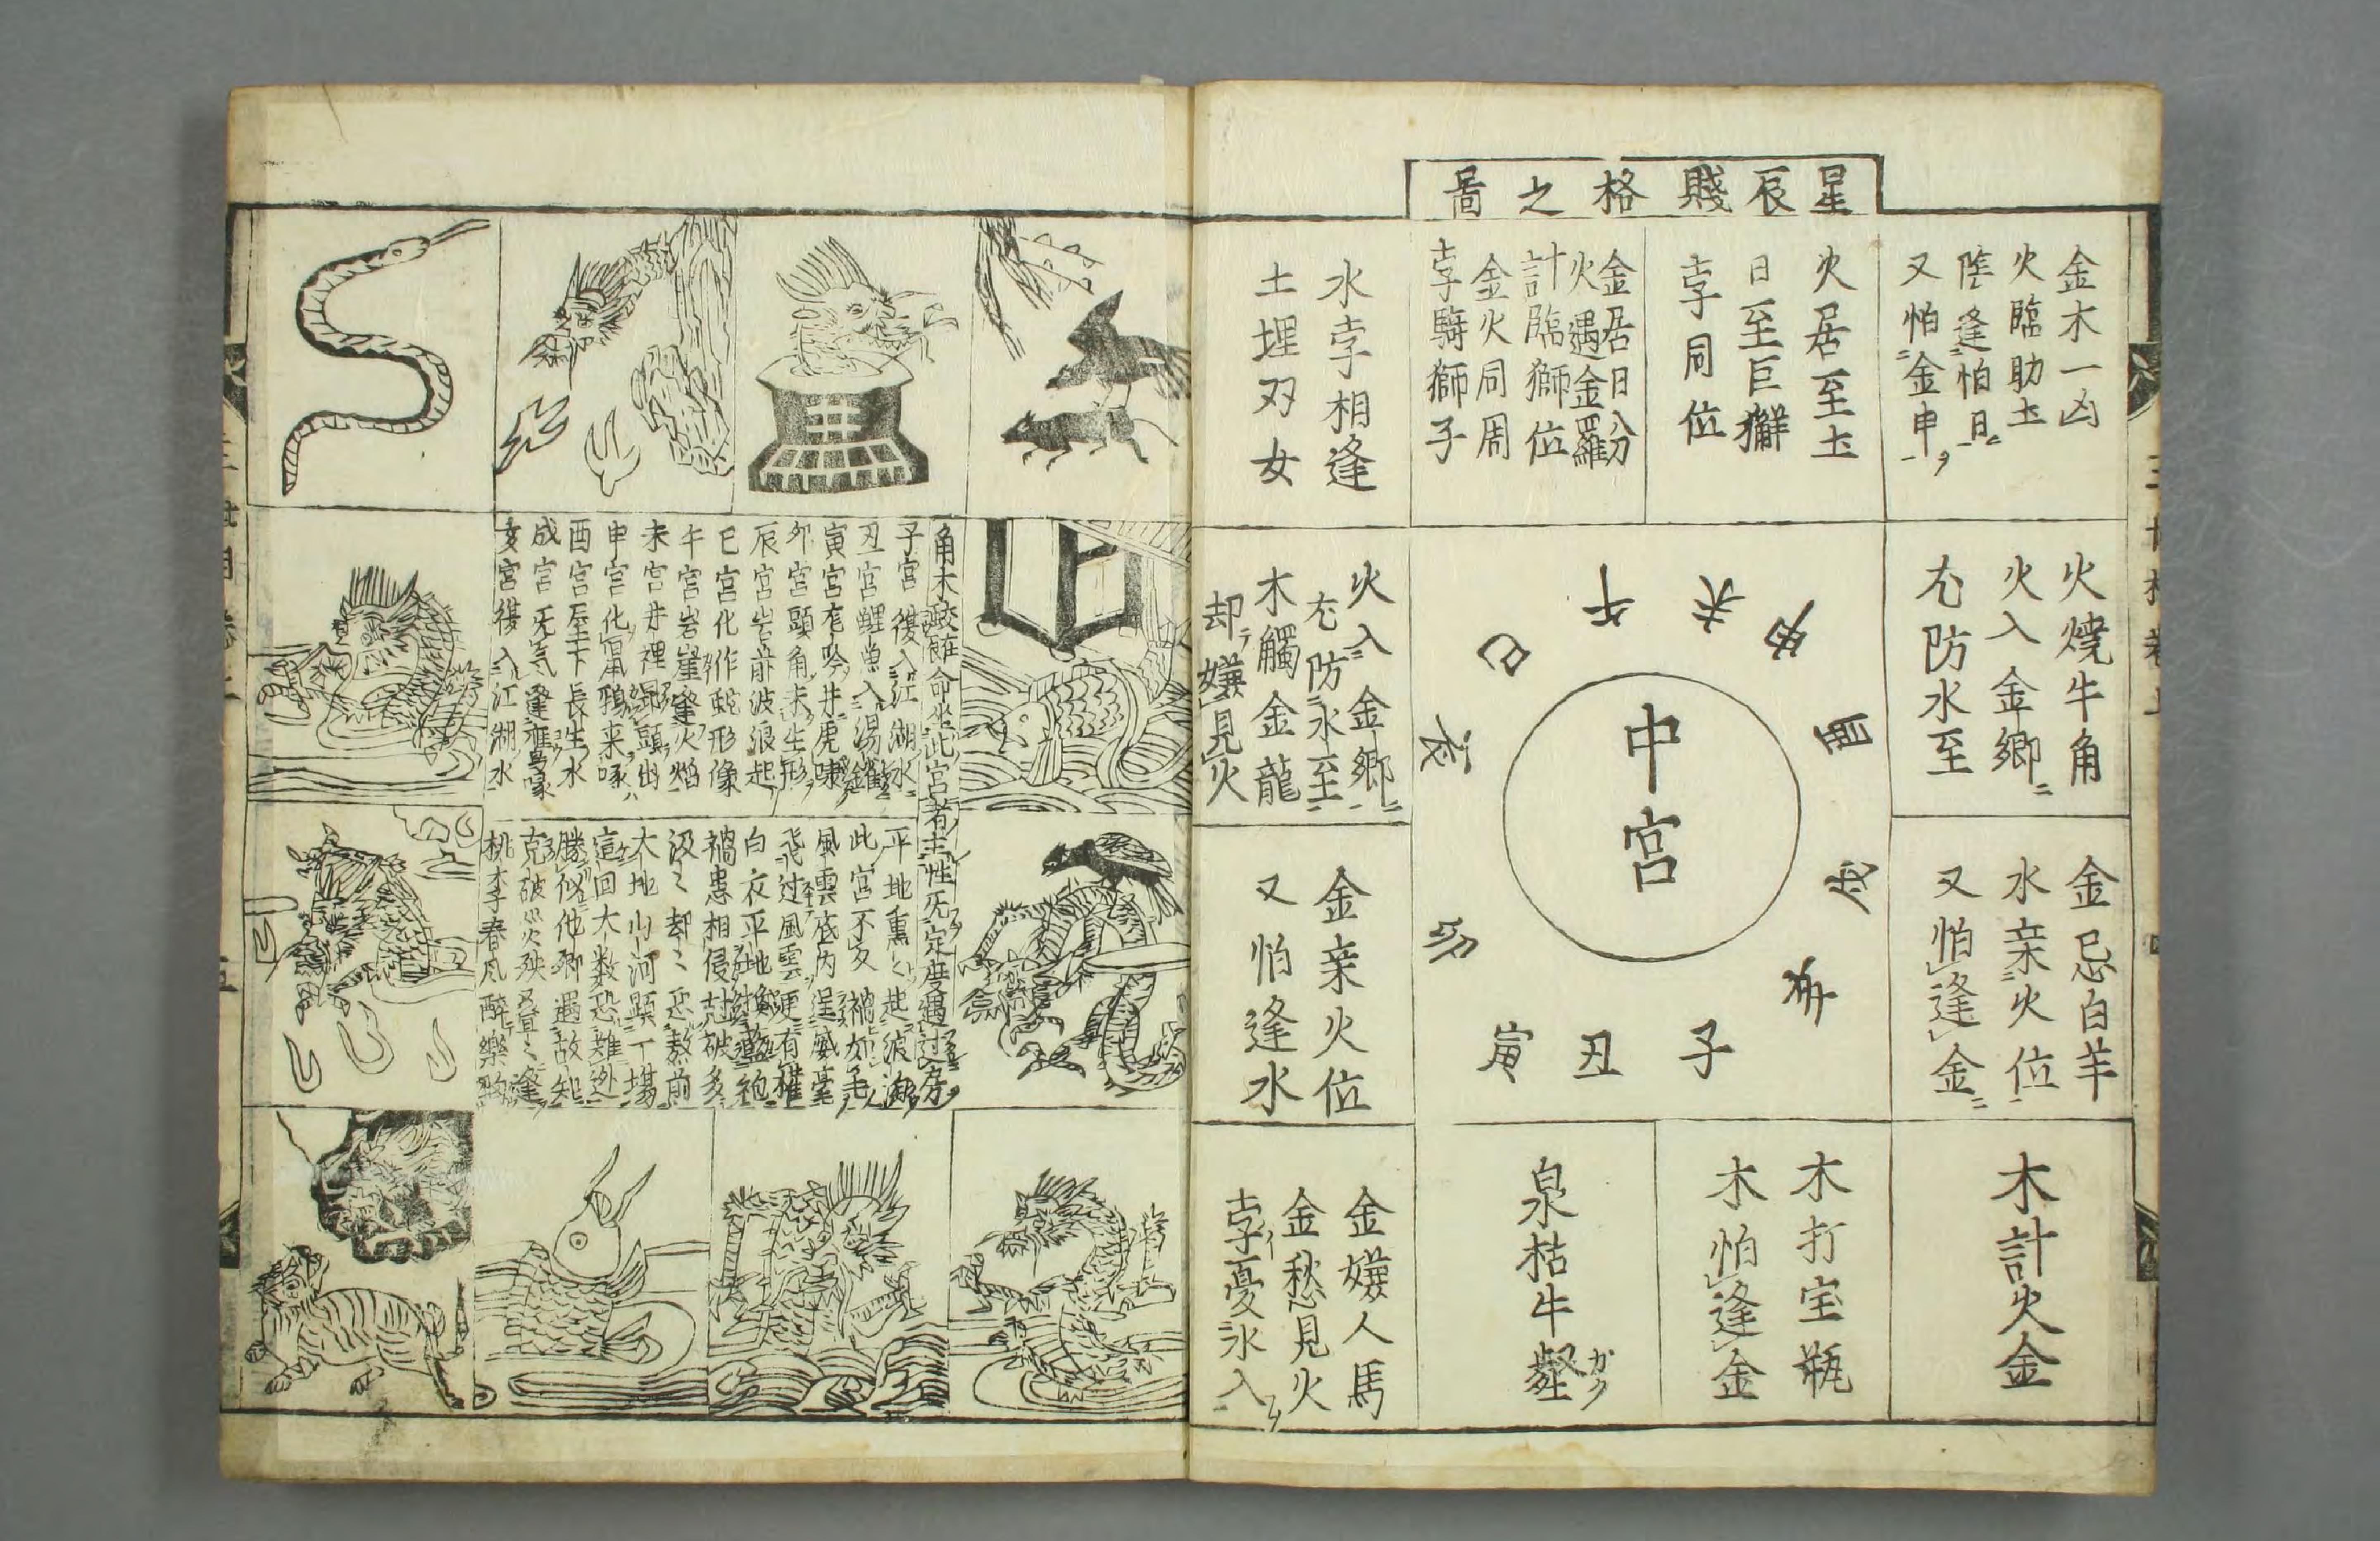 星辰賤格之啚
金木一凶
火臨助土
陰逢怕日
又怕金申
火居至土
日至巨獬
孛同位
金居日分
火遇金羅
計臨獅位
金火同周
孛騎獅子
水孛相逢
土埋双女
火燒牛角
火入金鄉
尤防水至
火入金鄉
尤防水至
木觸金龍
却嫌見火
金忌白羊
水亲火位
又怕逢金
金亲火位
又怕逢水
木計火金
木打宝瓶
木怕逢金
泉枯牛
カク
金嫌人馬
金愁見火
孛憂水入
中宮
子
丑
寅
卯
辰
巳
午
未
申
酉
戌
亥
角木蛟命坐此宮者主性旡定度
子宮復入江湖水
丑宮鯉魚入湯鑊
寅宮在吟井虎啸
夘宮頭角未生形
辰宮岩前波浪起
巳宮化作蛇形像
午宮岩崖逢火焰
未宮井裡頭出
申宮化鼠鴉来啄
酉宮厓下長生水
戌宮旡氣逢
亥宮復入江湖水
平地重〻起浪
此宮不
風雲底内逞威毫
飛过風雲更有權
白衣平地換藍袍
禍患相侵尅破多
汲〻却〻忌敖前
大地山河顕一場
這回大数恐難迯
勝似他鄉遇故知
克破災殃疊〻逢
桃李春風醉樂